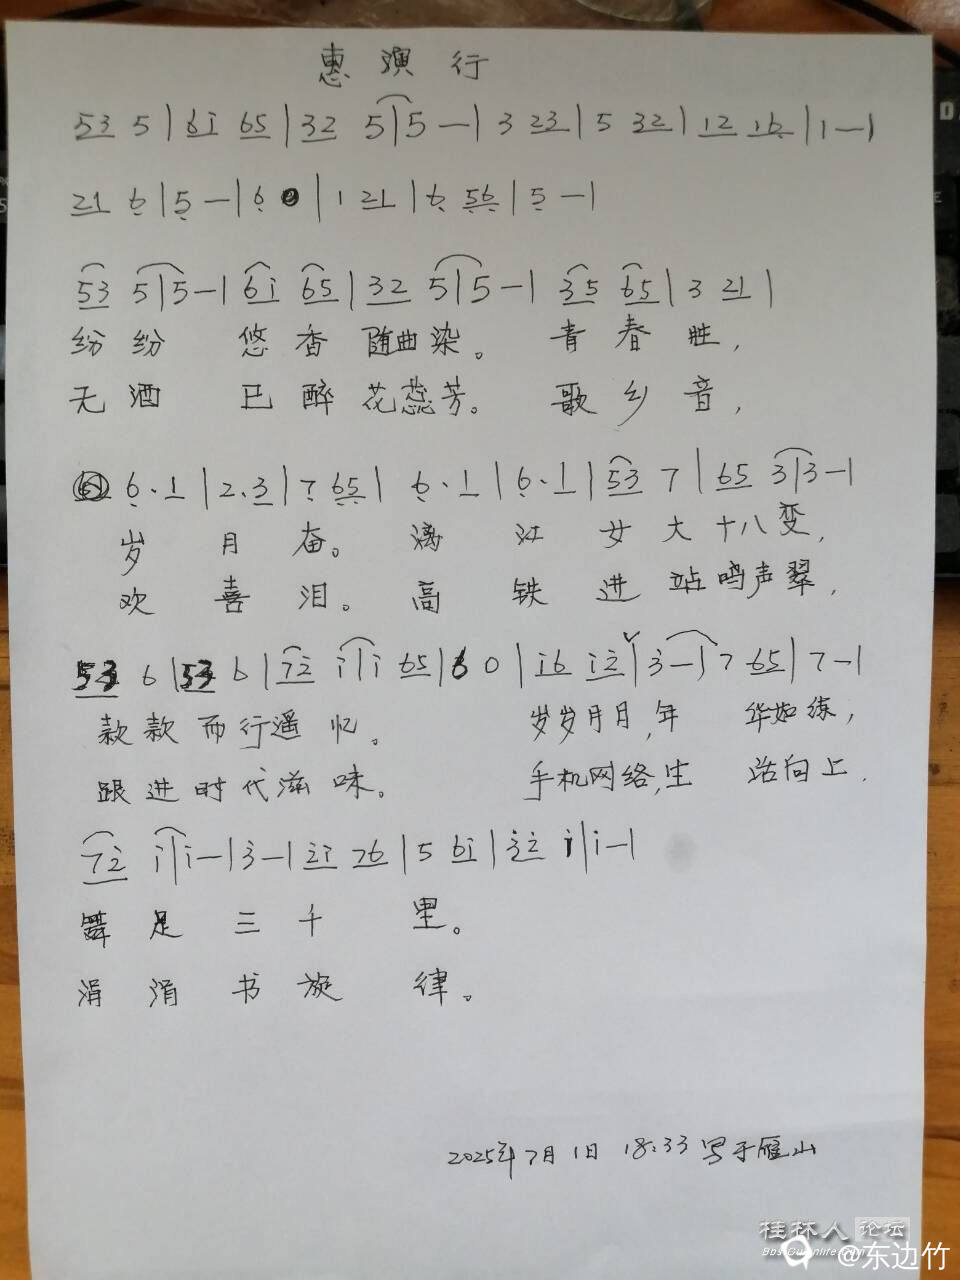 惠演行
53 5 | 6i 65 | 32 5 | 5 — | 3 23 | 5 32 | 12 16 | 1 — |
21 6 | 5 — | 6 | 1 21 | 6 56 | 5 — |
53 5 | 5 — | 6i 65 | 32 5 | 5 — | 35 65 | 3 21 |
纷纷 悠香随曲染。 青春胜，
无酒 已醉花蕊芳。 歌乡音，
6 · 1 | 2 · 3 | 7 65 | 6 · 1 | 6 · 1 | 53 7 | 65 3 | 3 — |
岁月奋。 漓江女大十八变，
欢喜泪。 高铁进站鸣声翠，
53 6 | 53 6 | 72̇ i | i 65 | 6 0 | i6 i2̇ | 3̇ — | 7 65 | 7 — |
款款而行遥忆。 岁岁月月,年 华如练，
跟进时代滋味。 手机网络,生 活向上，
72̇ i | i — | 3̇ — | 2̇i 76 | 5 6i | 3̇2̇ i | i — |
舞足三千 里。
涓涓书旋 律。
2025年7月1日 18:33 写于雁山
桂林人论坛
@东边竹